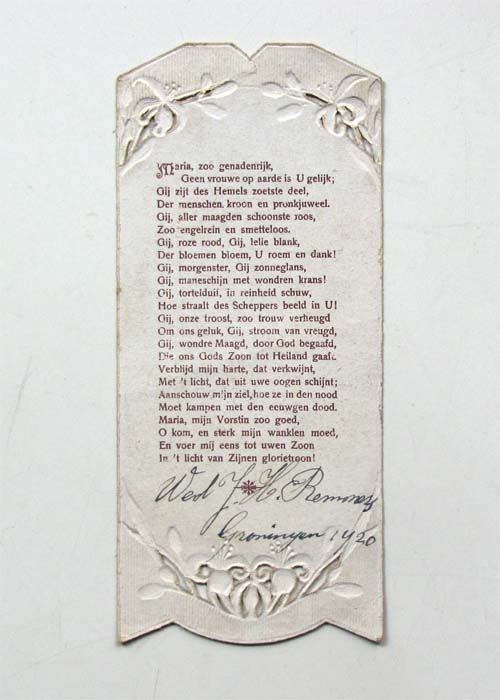 Maria, zoo genadenrijk,
Geen vrouwe op aarde is U gelijk;
Gij zijt des Hemels zoetste deel,
Der menschen kroon en pronkjuweel.
Gij, aller maagden schoonste roos,
Zoo engelrein en smetteloos.
Gij, roze rood, Gij, lelie blank,
Der bloemen bloem, U roem en dank!
Gij, morgenster, Gij zonneglans,
Gij, maneschijn met wondren krans!
Gij, torteiduif, in reinheid schuw,
Hoe straalt des Scheppers beeld in U!
Gij, onze troost, zoo trouw verheugd
Om ons geluk, Gij, stroom van vreugd,
Gij, wondre Maagd, door God begaafd,
Die ons Gods Zoon tot Heiland gaaft.
Verblijd mijn harte, dat verkwijnt,
Met 't licht, dat uit uwe oogen schijnt;
Aanschouw mijn ziel, hoe ze in den nood
Moet kampen met den eeuwgen dood.
Maria, mijn Vorstin zoo goed,
O kom, en sterk mijn wanklen moed,
En voer mij eens tot uwen Zoon
In 't licht van Zijnen glorietroon!
J. H.
Groningen 1920